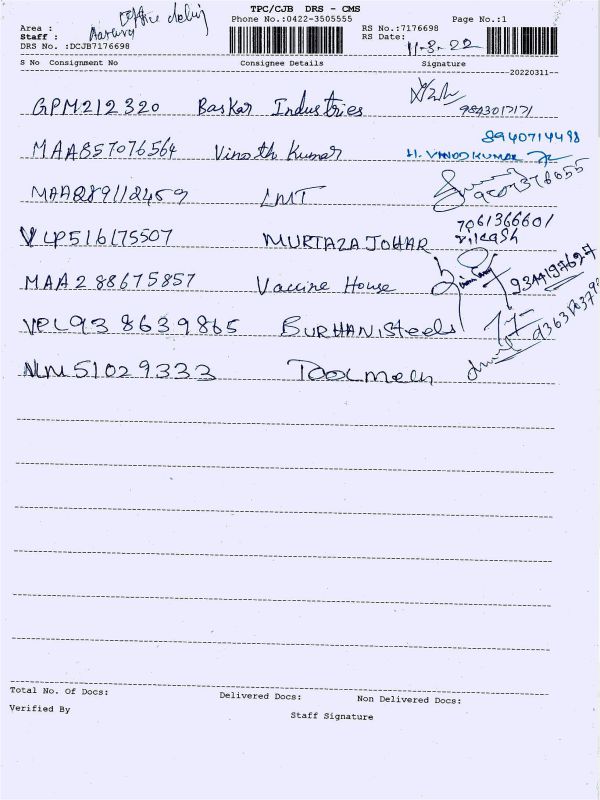 TPC/CJB DRS - CMS
Area : Office
Phone No.:0422-3505555
RS No.:7176698
Page No.:1
Staff :
RS Date: 11-3-22
DRS No. :DCJB7176698
S No Consignment No Consignee Details Signature
20220311
GPM212320 Baskar Industries
MAA857076564 Vinoth Kumar 8940714498
H. VINODKUMAR
MAA289112459 LMT
VLP516175507 MURTAZA JOHAR 7061366601
MAA288675857 Vaccine House
VPL938639865 BURHANI Steels
NLM51029333 Toolmech
Total No. Of Docs: Delivered Docs: Non Delivered Docs:
Verified By Staff Signature